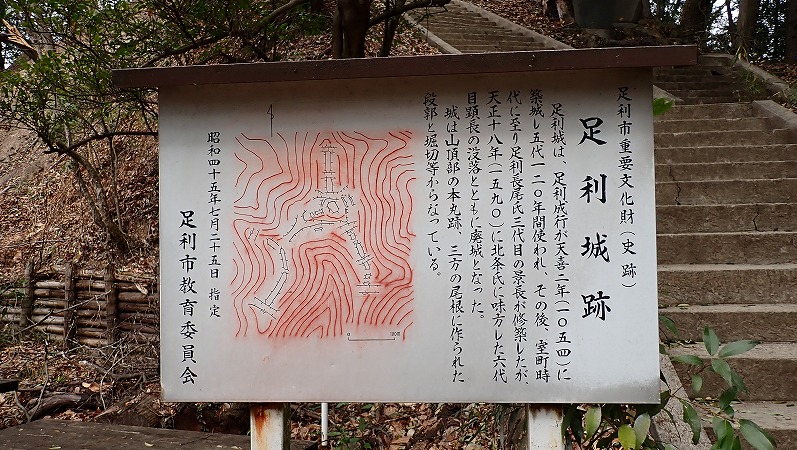 足利市重要文化財(史跡)
足利城跡
足利城は、足利成行が天喜二年(一〇五四)に
築城し五代一二〇年間使われ、その後、室町時
代に至り足利長尾氏三代目の景長が修築したが、
天正十八年(一五九〇)に北条氏に味方した六代
目顕長の没落とともに廃城となった。
城は山頂部の本丸跡、三方の尾根に作られた
段郭と堀切等からなっている。
昭和四十五年七月二十五日 指定
足利市教育委員会